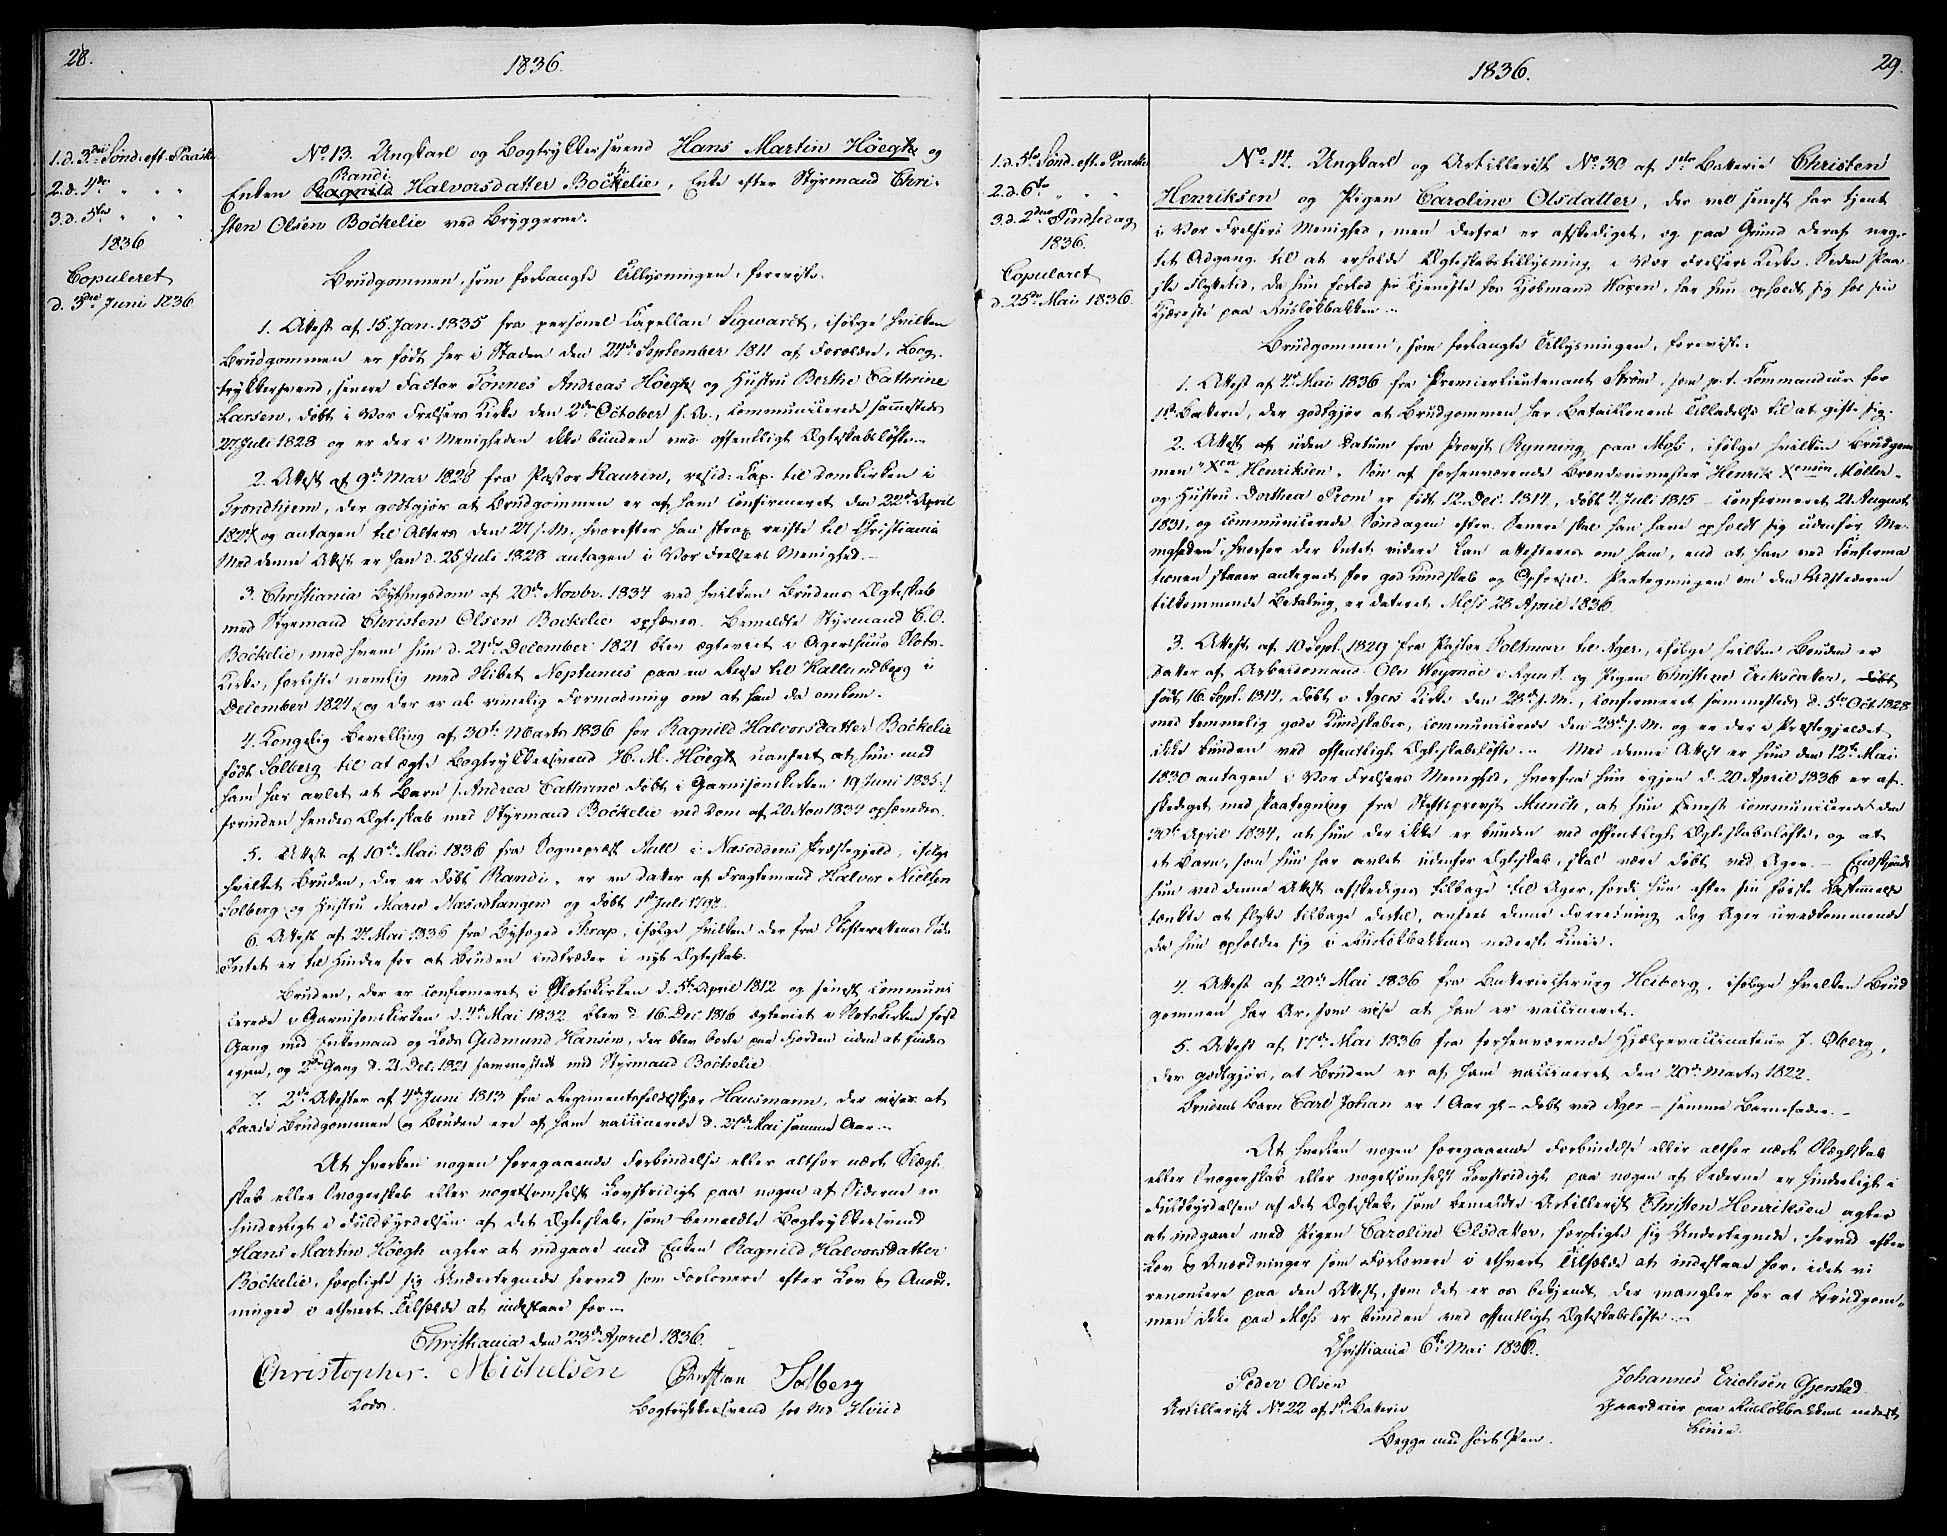 28.
1836.
1. d. 3die Sønd. eft. Paaske
2. d. 4de " " "
3. d. 5te " " "
1836
Copuleret
d. 3die Juni 1836
No 13. Ungkarl og Bogtrykkersvend Hans Martin Høegh og
Randi
Enken Ragnild Halvorsdatter Bockelie, Enke efter Styrmand Chri-
sten Olsen Bockelie ved Bryggerne.
Brudgommen, som forlangte Tillysningen, foreviste:
1. Attest af 15 Jan. 1835 fra personel Capellan Sigwardt, ifølge hvilken
Brudgommen er født her i Staden den 24de September 1811 af Forældre, Bog-
trykkersvend, senere Factor Tønnes Andreas Høegh og Hustru Berthe Cathrine
Larsen, døbt i Vor Frelsers Kirke den 2den October s. A., communicerede sammesteds
27 Juli 1828 og er der i Menigheden ikke bunden ved offentligt Ægteskabsløfte.
2. Attest af 9de Mai 1828 fra Pastor Kaurin, resid. Cap. til Domkirken i
Trondhjem, der godtgjør at Brudgommen er af ham confirmeret den 22de April
1827 og antagen til Alters den 27 s. M. hvorefter han strax reiste til Christiania
Med denne Attest er han d. 25 Juli 1828 antagen i Vor Frelsers Menighed.
3. Christiania Bythingsdom af 20de Novbr. 1834 ved hvilken Brudens Ægteskab
med Styrmand Christen Olsen Bockelie ophæves. Bemeldte Styrmand C. O.
Bockelie, med hvem hun d. 21de December 1821 blev ægteviet i Agershuus Slots-
kirke, forliste nemlig med Skibet Neptunus paa en Reise til Kallundborg i
December 1824, og der er al rimelig Formodning om at han da omkom.
4. Kongelig Bevilling af 30te Marts 1836 for Ragnild Halvorsdatter Bockelie
født Solberg til at ægte Bogtrykkersvend H. M. Høegh uanseet at hun med
ham har avlet et Barn /: Andrea Cathrine døbt i Garnisonskirken 19 Juni 1835 :/
forinden hendes Ægteskab med Styrmand Bockelie ved Dom af 20 Nov 1834 ophævedes.
5. Attest af 10de Mai 1836 fra Sognepræst Aall i Næsoddens Præstegjeld, ifølge
hvilket Bruden, der er døbt Randi, er en Datter af Fragtemand Halvor Nielsen
Solberg og Hustru Marie Næsodtangen og døbt 1ste Juli 1798.
6. Attest af 27 Mai 1836 fra Byfoged Thrap, ifølge hvilken der fra Skifterettens Side
Intet er til Hinder for at Bruden indtræder i nyt Ægteskab.
Bruden, der er confirmeret i Slotskirken d. 5te April 1812 og senest communi
cerede i Garnisonskirken d. 4de Mai 1832 blev d 16 Dec. 1816 ægteviet i Slotskirken først
Gang med Enkemand og Lods Gudmund Hansen, der blev borte paa Fjorden uden at findes
igjen, og 2den Gang d. 21 Dec. 1821 sammesteds med Styrmand Bockelie
7. 2de Attester af 4de Juni 1813 fra Regimentsfeldskjær Hausmann, der viser at
baade Brudgommen og Bruden ere af ham vaccinerede d. 27de Mai samme Aar.
At hverken nogen foregaaende Forbindelse eller altfor nært Slægt-
skab eller Svogerskab eller nogetsomhelst Lovstridigt paa nogen af Siderne er
hinderligt i Fuldbyrdelsen af det Ægteskab, som bemeldte Bogtrykkersvend
Hans Martin Høegh agter at indgaae med Enken Ragnild Halvorsdatter
Bockelie, forpligte sig Undertegnede herved som Forlovere efter Lov og Anord-
ninger i ethvert Tilfælde at indestaae for.
Christiania den 23de April 1836.
Christopher. Michelsen Christian Solberg
Lods. Bogtrykkersvend hos Mr Hviid
29.
1836.
1. d. 5te Sønd. eft. Paaske
2. d. 6te " "
3. d. 2den Pindsedag
1836.
Copuleret
d. 25de Mai 1836.
No 14. Ungkarl og Artillerist No 30 af 1ste Batterie Christen
Henriksen og Pigen Caroline Olsdatter, der vel senest har tjent
i Vor Frelsers Menighed, men derfra er afskediget, og paa Grund deraf neg-
tet Adgang til at erholde Ægteskabstillysning i Vor Frelsers Kirke. Siden Paa-
ske Flyttetid, da hun forlod sin Tjeneste hos Kjøbmand Woxen, har hun opholdt sig hos sin
Kjæreste paa Ruseløkbakken.
Brudgommen, som forlangte Tillysningen, foreviste:
1. Attest af 4de Mai 1836 fra Premierlieutenant Strøm, som p. t. Commandeur for
1ste Batterie, der godtgjør at Brudgommen har Bataillonens Tilladelse til at gifte sig.
2. Attest af uden Datum fra Provst Rynning paa Moss, ifølge hvilken Brudgom
men "Xen Henriksen, Søn af forhenværende Brænderimester "Henrik Xensen Møller
og Hustru Dorthea Prom er født 12. Dec. 1814, døbt 7. Juli 1815 – confirmeret 21 August
1831, og communicerede Søndagen efter. Senere skal han have opholdt sig udenfor Me-
nigheden, hvorfor der Intet videre kan attesteres om ham, end at han ved Confirma
tionen staaer antegnet for god Kundskab og Opførsel. Paategningen om den Udstederen
tilkommende Betaling er dateret Moss 28 April 1836.
3. Attest af 10 Sept. 1829 fra Pastor Foltmar til Ager, ifølge hvilken Bruden er
Datter af Arbeidsmand Ole og Pigen Christine Eriksdatter, døbt
født 16. Sept. 1814, døbt i Agers Kirke den 23de s. M., confirmeret sammesteds d. 5te Oct. 1828
med temmelig gode Kundskaber, communicerede den 23de s. M. og er der i Præstegjeldet
ikke bunden ved offentligt Ægteskabsløfte. – Med denne Attest er hun den 12te Mai
1830 antagen i Vor Frelsers Menighed, hvorfra hun igjen d. 20 April 1836 er af-
skediget med Paategning fra Stiftsprovst Munch, at hun senest communicerede den
30te April 1834, at hun der ikke er bunden ved offentligt Ægteskabsløfte, og at
et Barn, som hun har avlet udenfor Ægteskab, skal være døbt ved Ager. – Endskjøndt
hun ved denne Attest afskediges tilbage til Ager, fordi hun efter sin første Bestemmelse
tænkte at flytte tilbage dertil, ansees denne Forretning dog Ager uvedkommende
da hun opholder sig i Ruseløkbakkens nederste Linie.
4. Attest af 20de Mai 1836 fra Batteriechirurg Heiberg, ifølge hvilken Brud
gommen har Ar, som vise at han er vaccineret.
5. Attest af 17de Mai 1836 fra forhenværende Hjælpevaccinateur J. Øberg,
der godtgjør, at Bruden er af ham vaccineret den 20de Marts 1822.
Brudens Barn Carl Johan er 1 Aar gl – døbt ved Ager – samme Barnefader. –
At hverken nogen foregaaende Forbindelse eller altfor nært Slægtskab
eller Svogerskab eller nogetsomhelst Lovstridigt paa nogen af Siderne er hinderligt i
Fuldbyrdelsen af det Ægteskab, som bemeldte Artillerist Christen Henriksen agter
at indgaae med Pigen Caroline Olsdatter, forpligte sig Undertegnede, herved efter
Lov og Anordninger som Forlovere i ethvert Tilfælde at indestaae for, idet vi
renoncere paa den Attest, som det er os bekjendt der mangler for at Brudgom-
men ikke paa Moss er bunden ved offentligt Ægteskabsløfte. –
Christiania 6te Mai 1836.
Peder Olsen Johannes Erichsen Gjerstad
Artillerist No 22 af 1ste Batterie Gaardeier paa Ruseløkbakkens nederste
Linie.
Begge med ført Pen.